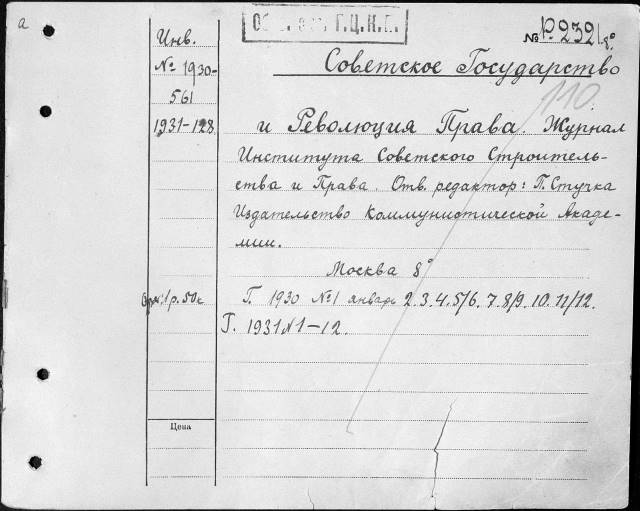 а
Г.Ц.К.Б.
№ Р.2321 8°
Инв.
№ 1930-
561
1931-128
Советское Государство
110.
и Революция Права. Журнал
Института Советского Строитель-
ства и Права. Отв. редактор: П. Стучка
Издательство Коммунистической Акаде-
мии.
Москва 8°
1р. 50к
Г. 1930 №1 январь 2. 3. 4. 5/6. 7. 8/9. 10. 11/12.
Г. 1931 №1-12.
Цена